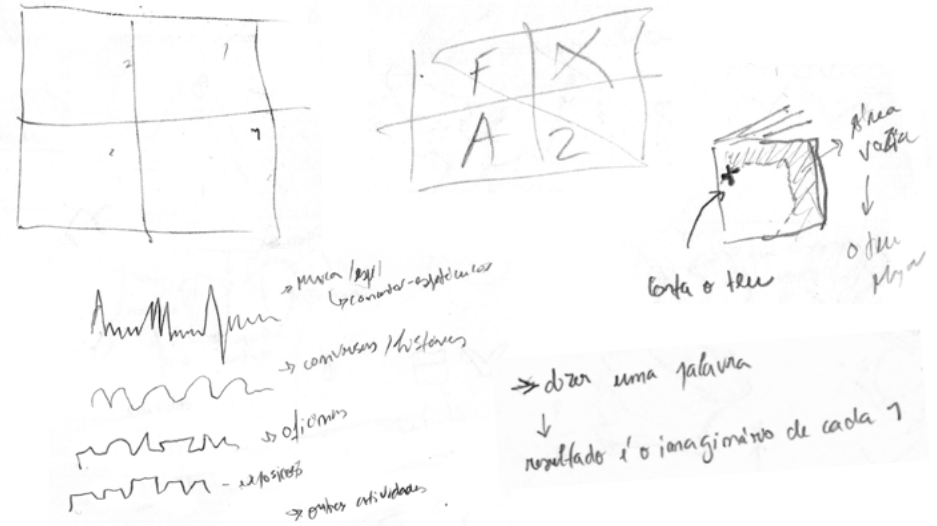 2
1
F X
A 2
área
vazia
o teu
conta o teu
→ musica /
↳ comentar-espetáculos
→ conversas / histórias
→ oficinas
- exposições
→ outras actividades
⇒ dizer uma palavra
↓
resultado é o imaginário de cada 1